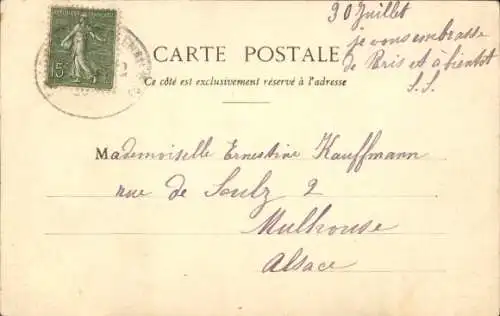 RÉPUBLIQUE FRANÇAISE
15c
CARTE POSTALE
Ce côté est exclusivement réservé à l'adresse
30 Juillet
je vous embrasse
de Paris et à bientot
S.S.
Mademoiselle Ernestine Kauffmann
rue de Soulz 2
Mulhouse
Alsace